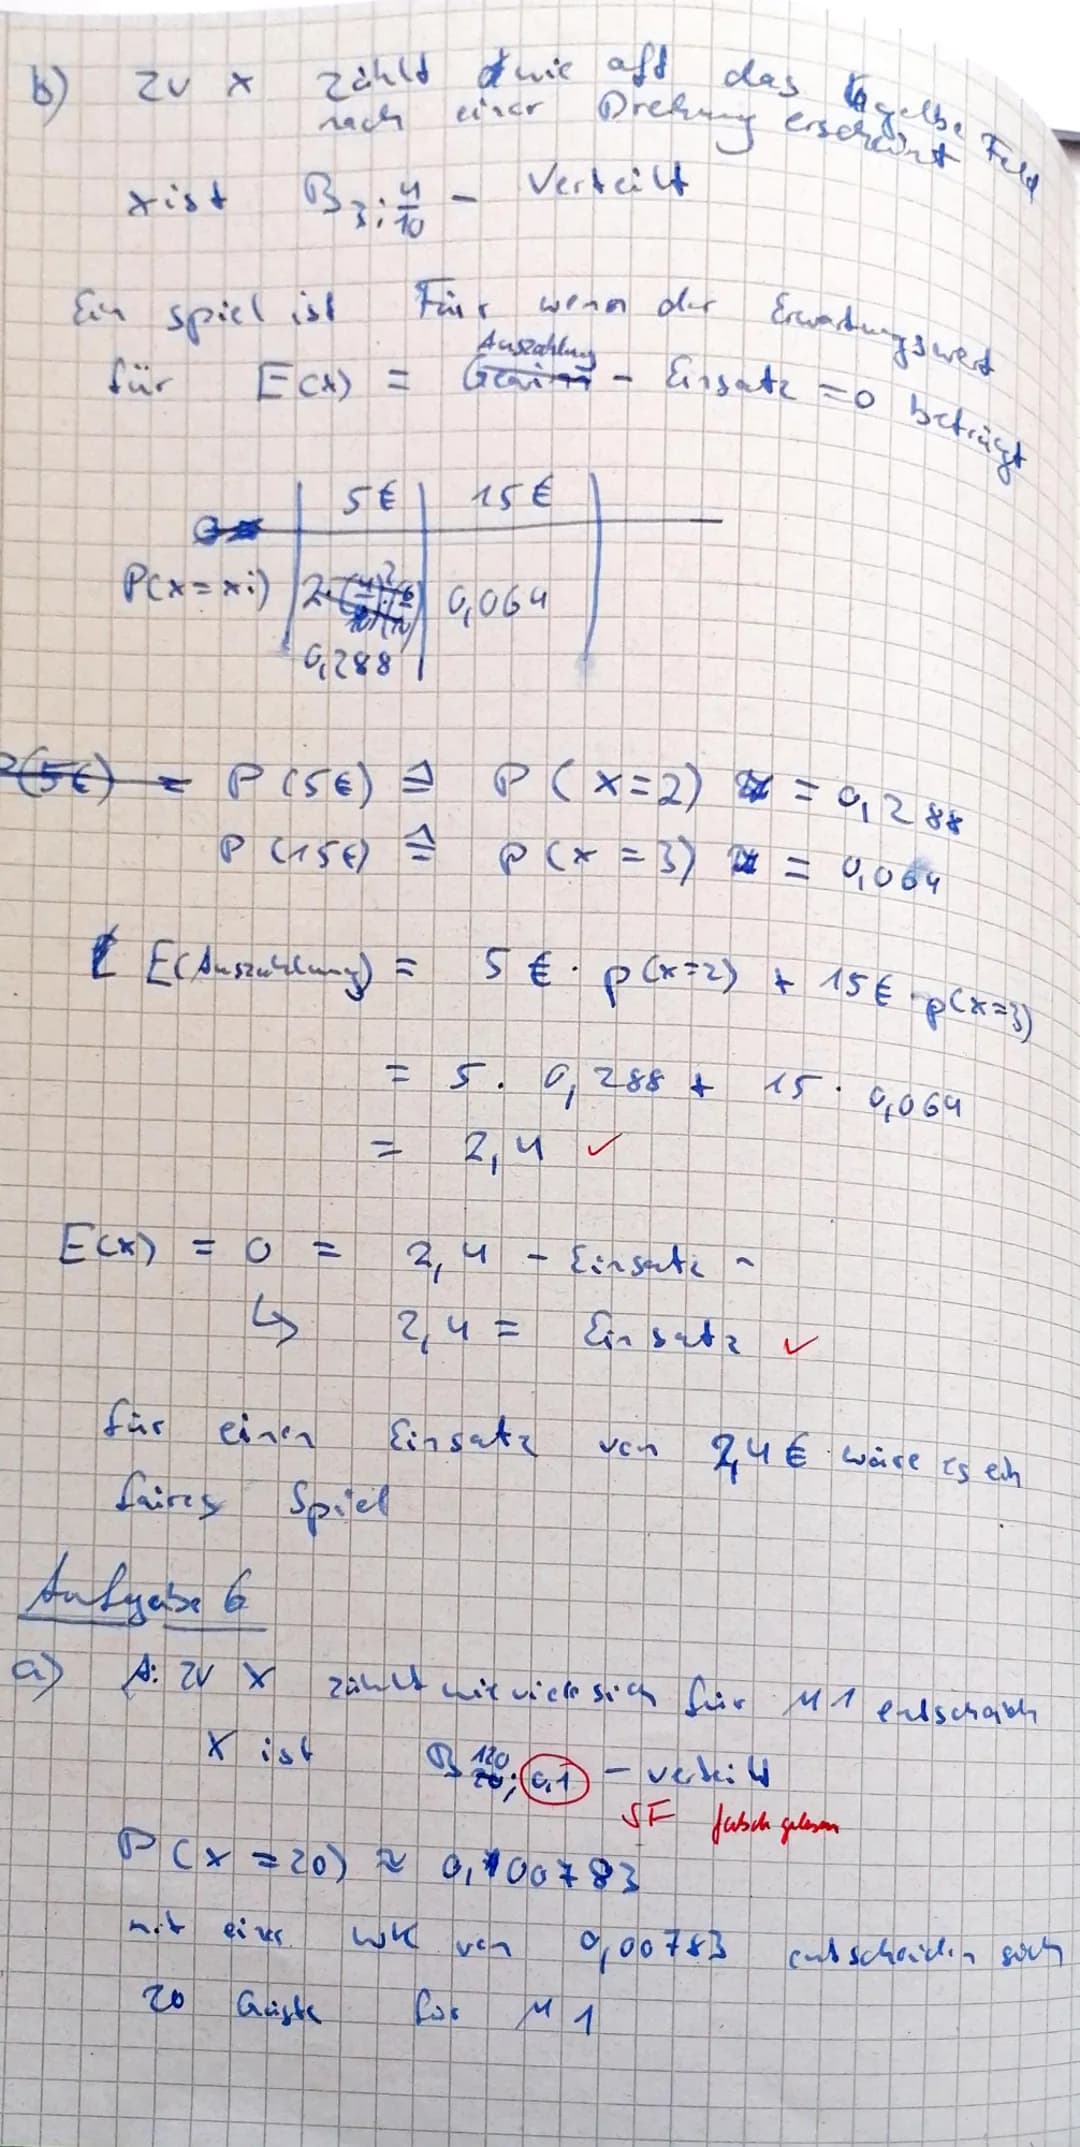 b) ZV X zählt wie oft das gelbe Feld
nach einer Drehung erscheint
X ist B 3; 4/10 - Verteilt
Ein spiel ist Fair wenn der Erwartungswert
für E(X) = Auszahlung - Einsatz = 0 beträgt
5€ 15€
P(X=xi) 0,064
0,288
P(5€) = P (5€) ≙ P(X=2) = 0,288
P (15€) ≙ P(X=3) = 0,064
E(Auszahlung) = 5€ · p(x=2) + 15€ · p(x=3)
= 5 · 0,288 + 15 · 0,064
= 2,4 ✓
E(X) = 0 = 2,4 - Einsatz
↳ 2,4 = Einsatz ✓
für einen Einsatz von 2,4€ wäre es ein
faires Spiel
Aufgabe 6
a) A: ZV X zählt wie viele sich für M1
X ist B 120; 0,1 - verteilt
SF falsch gelesen
P(X=20) ≈ 0,00783
mit einer WK von 0,00783 entscheiden sich
20 Gäste für M1